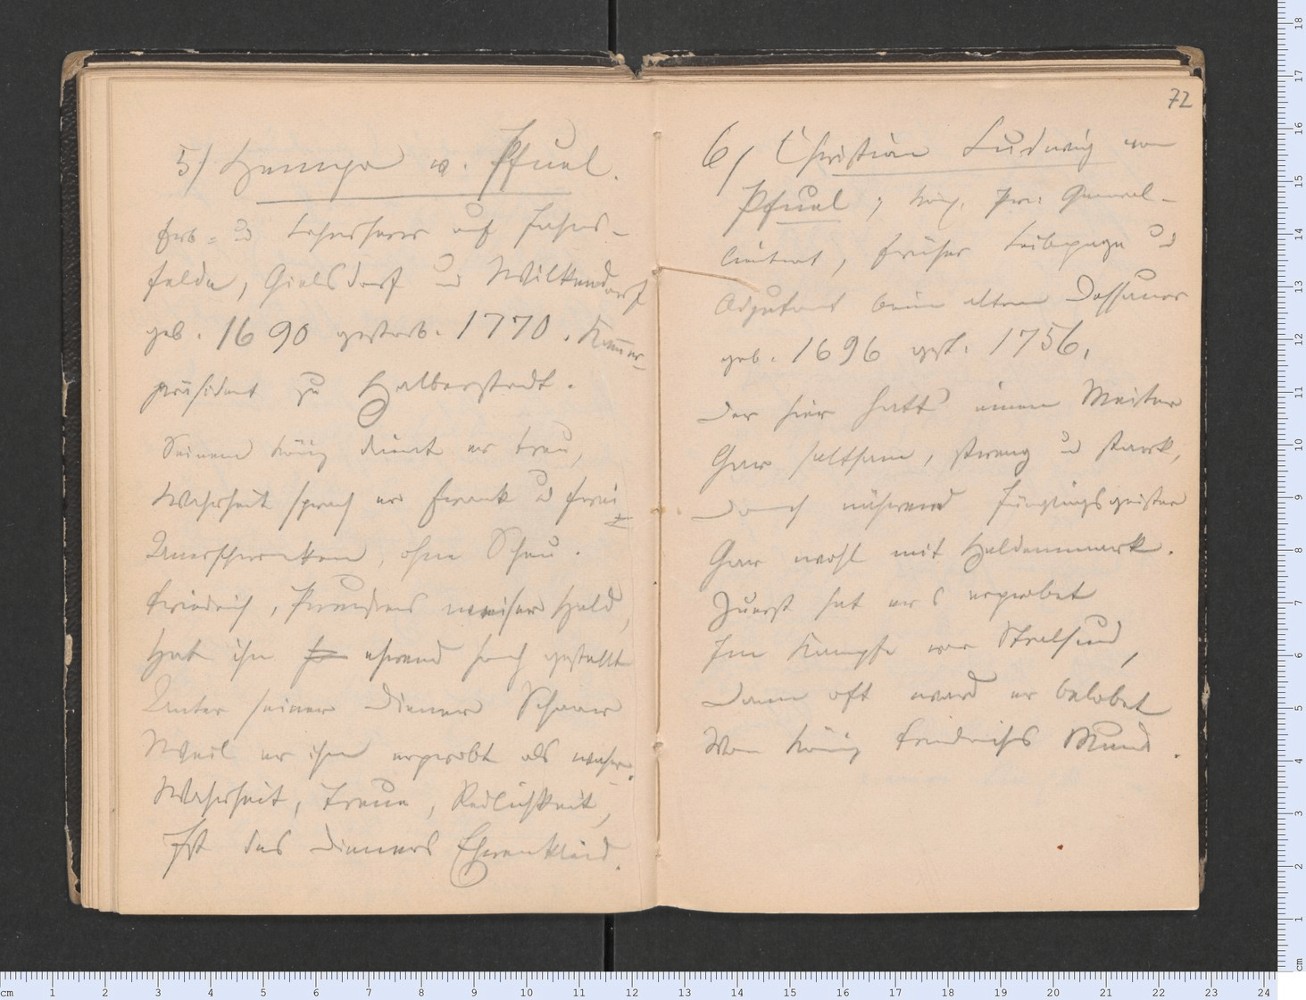 5) Hempo v. Pfuel.
Erb- u Lehnsherr auf Jahns-
felde, Gielsdorf und Wilkendorf
geb. 1690 gestorb. 1770. Kammer-
präsident zu Halberstadt.
Seinem König dient er treu,
Wahrheit sprach er frank u frei
Unerschrocken, ohne Scheu.
Friedrich, Preußens weiser Held,
Hat ihn ehrend hoch gestellt
Unter seiner Diener Schaar
Weil er ihm erprobt als wahr.
Wahrheit, Treue, Redlichkeit,
Ist des Dieners Ehrenkleid.
72
6) Christian Ludwig von
Pfuel, Kön. Pr. General-
lieutnant, früher Leibpage u
Adjutant beim alten Dessauer
geb. 1696 gest. 1756.
Der hier hatt' einen Meister
Gar seltsam, streng u stark,
Doch nährend Jünglingsgeister
Gar wohl mit Heldenmark.
Zuerst hat er's erprobet
Im Kampfe vor Stralsund,
Dann oft ward er belobet
Von König Friedrichs Mund.